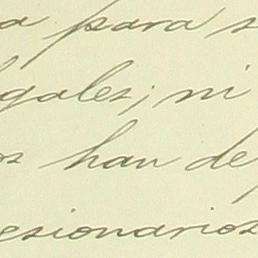 a para s
gales; ni
os han de
esionarios